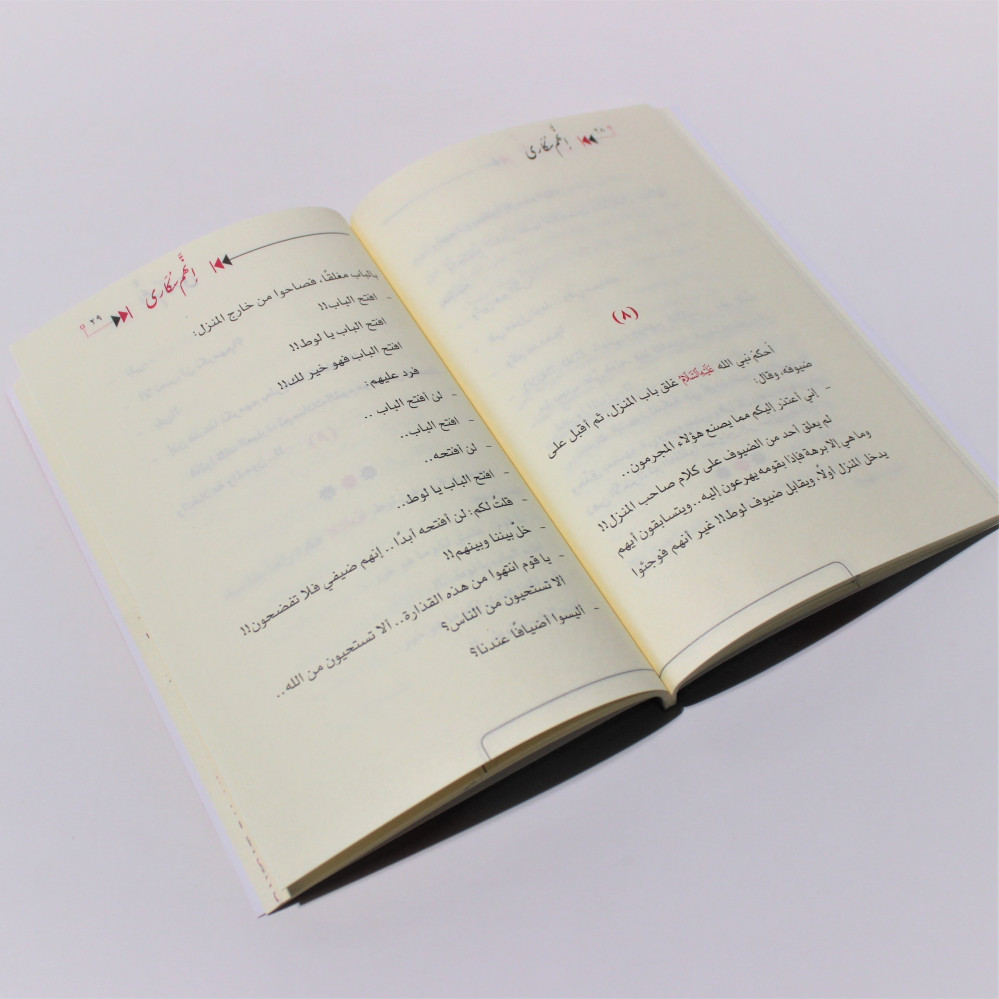 إنَّهُم سُكَارى
٢٨
(٨)
أحكمَ نبي الله عَلَيْهِ السَّلَامُ غلق باب المنزل، ثم أقبل على
ضيوفه، وقال:
- إني أعتذر إليكم مما يصنع هؤلاء المجرمون..
لم يعلق أحد من الضيوف على كلام صاحب المنزل!!
وما هي إلا برهة فإذا بقومه يهرعون إليه.. ويتسابقون أيهم
يدخل المنزل أولاً، ويقابل ضيوف لوط!! غير أنهم فوجئوا
إنَّهُم سُكَارى
٢٩
بالباب مغلقًا، فصاحوا من خارج المنزل:
- افتح الباب!!
افتح الباب يا لوط!!
افتح الباب فهو خير لك!!
فرد عليهم:
- لن أفتح الباب ..
- افتح الباب..
- لن أفتحه..
- افتح الباب يا لوط..
- قلتُ لكم: لن أفتحه أبدًا .. إنهم ضيفي فلا تفضحون!!
- خلِّ بيننا وبينهم!!
- يا قوم انتهوا من هذه القذارة.. ألا تستحيون من الله..
ألا تستحيون من الناس؟
- أليسوا أضيافًا عندنا؟